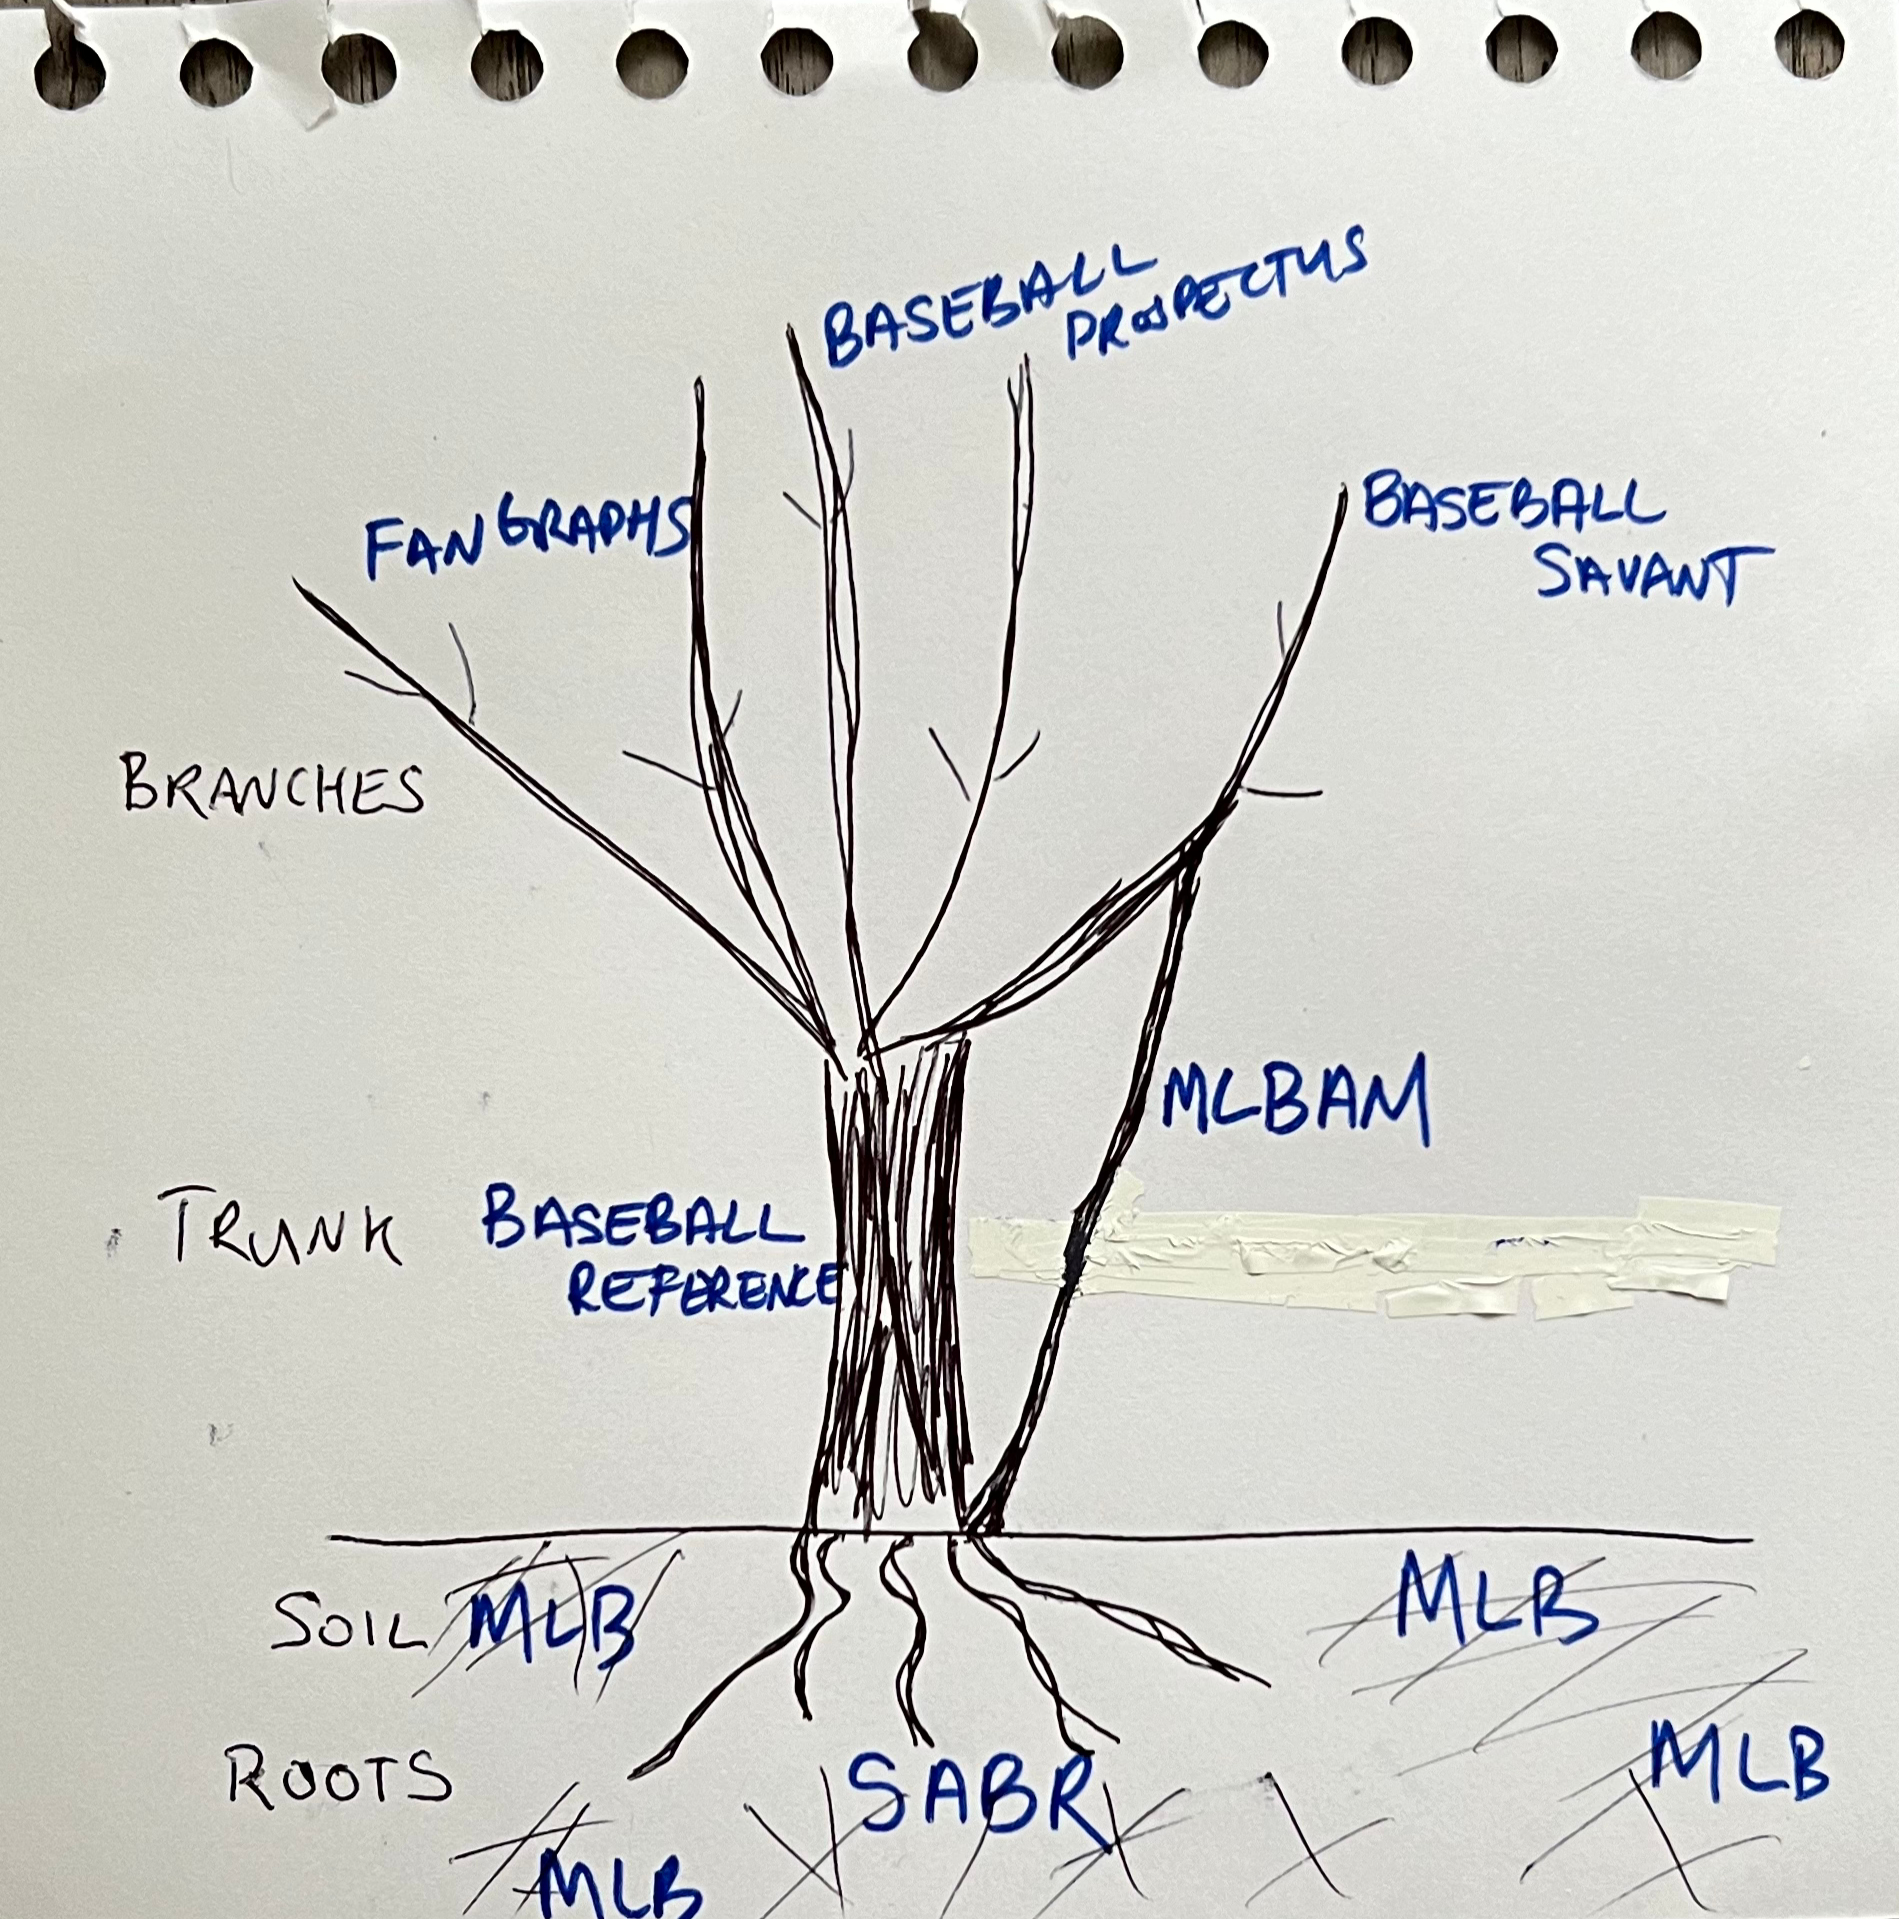 BASEBALL
PROSPECTUS
FANGRAPHS
BASEBALL
SAVANT
BRANCHES
MLBAM
TRUNK
BASEBALL
REFERENCE
SOIL MLB
MLB
ROOTS
SABR
MLB
MLB